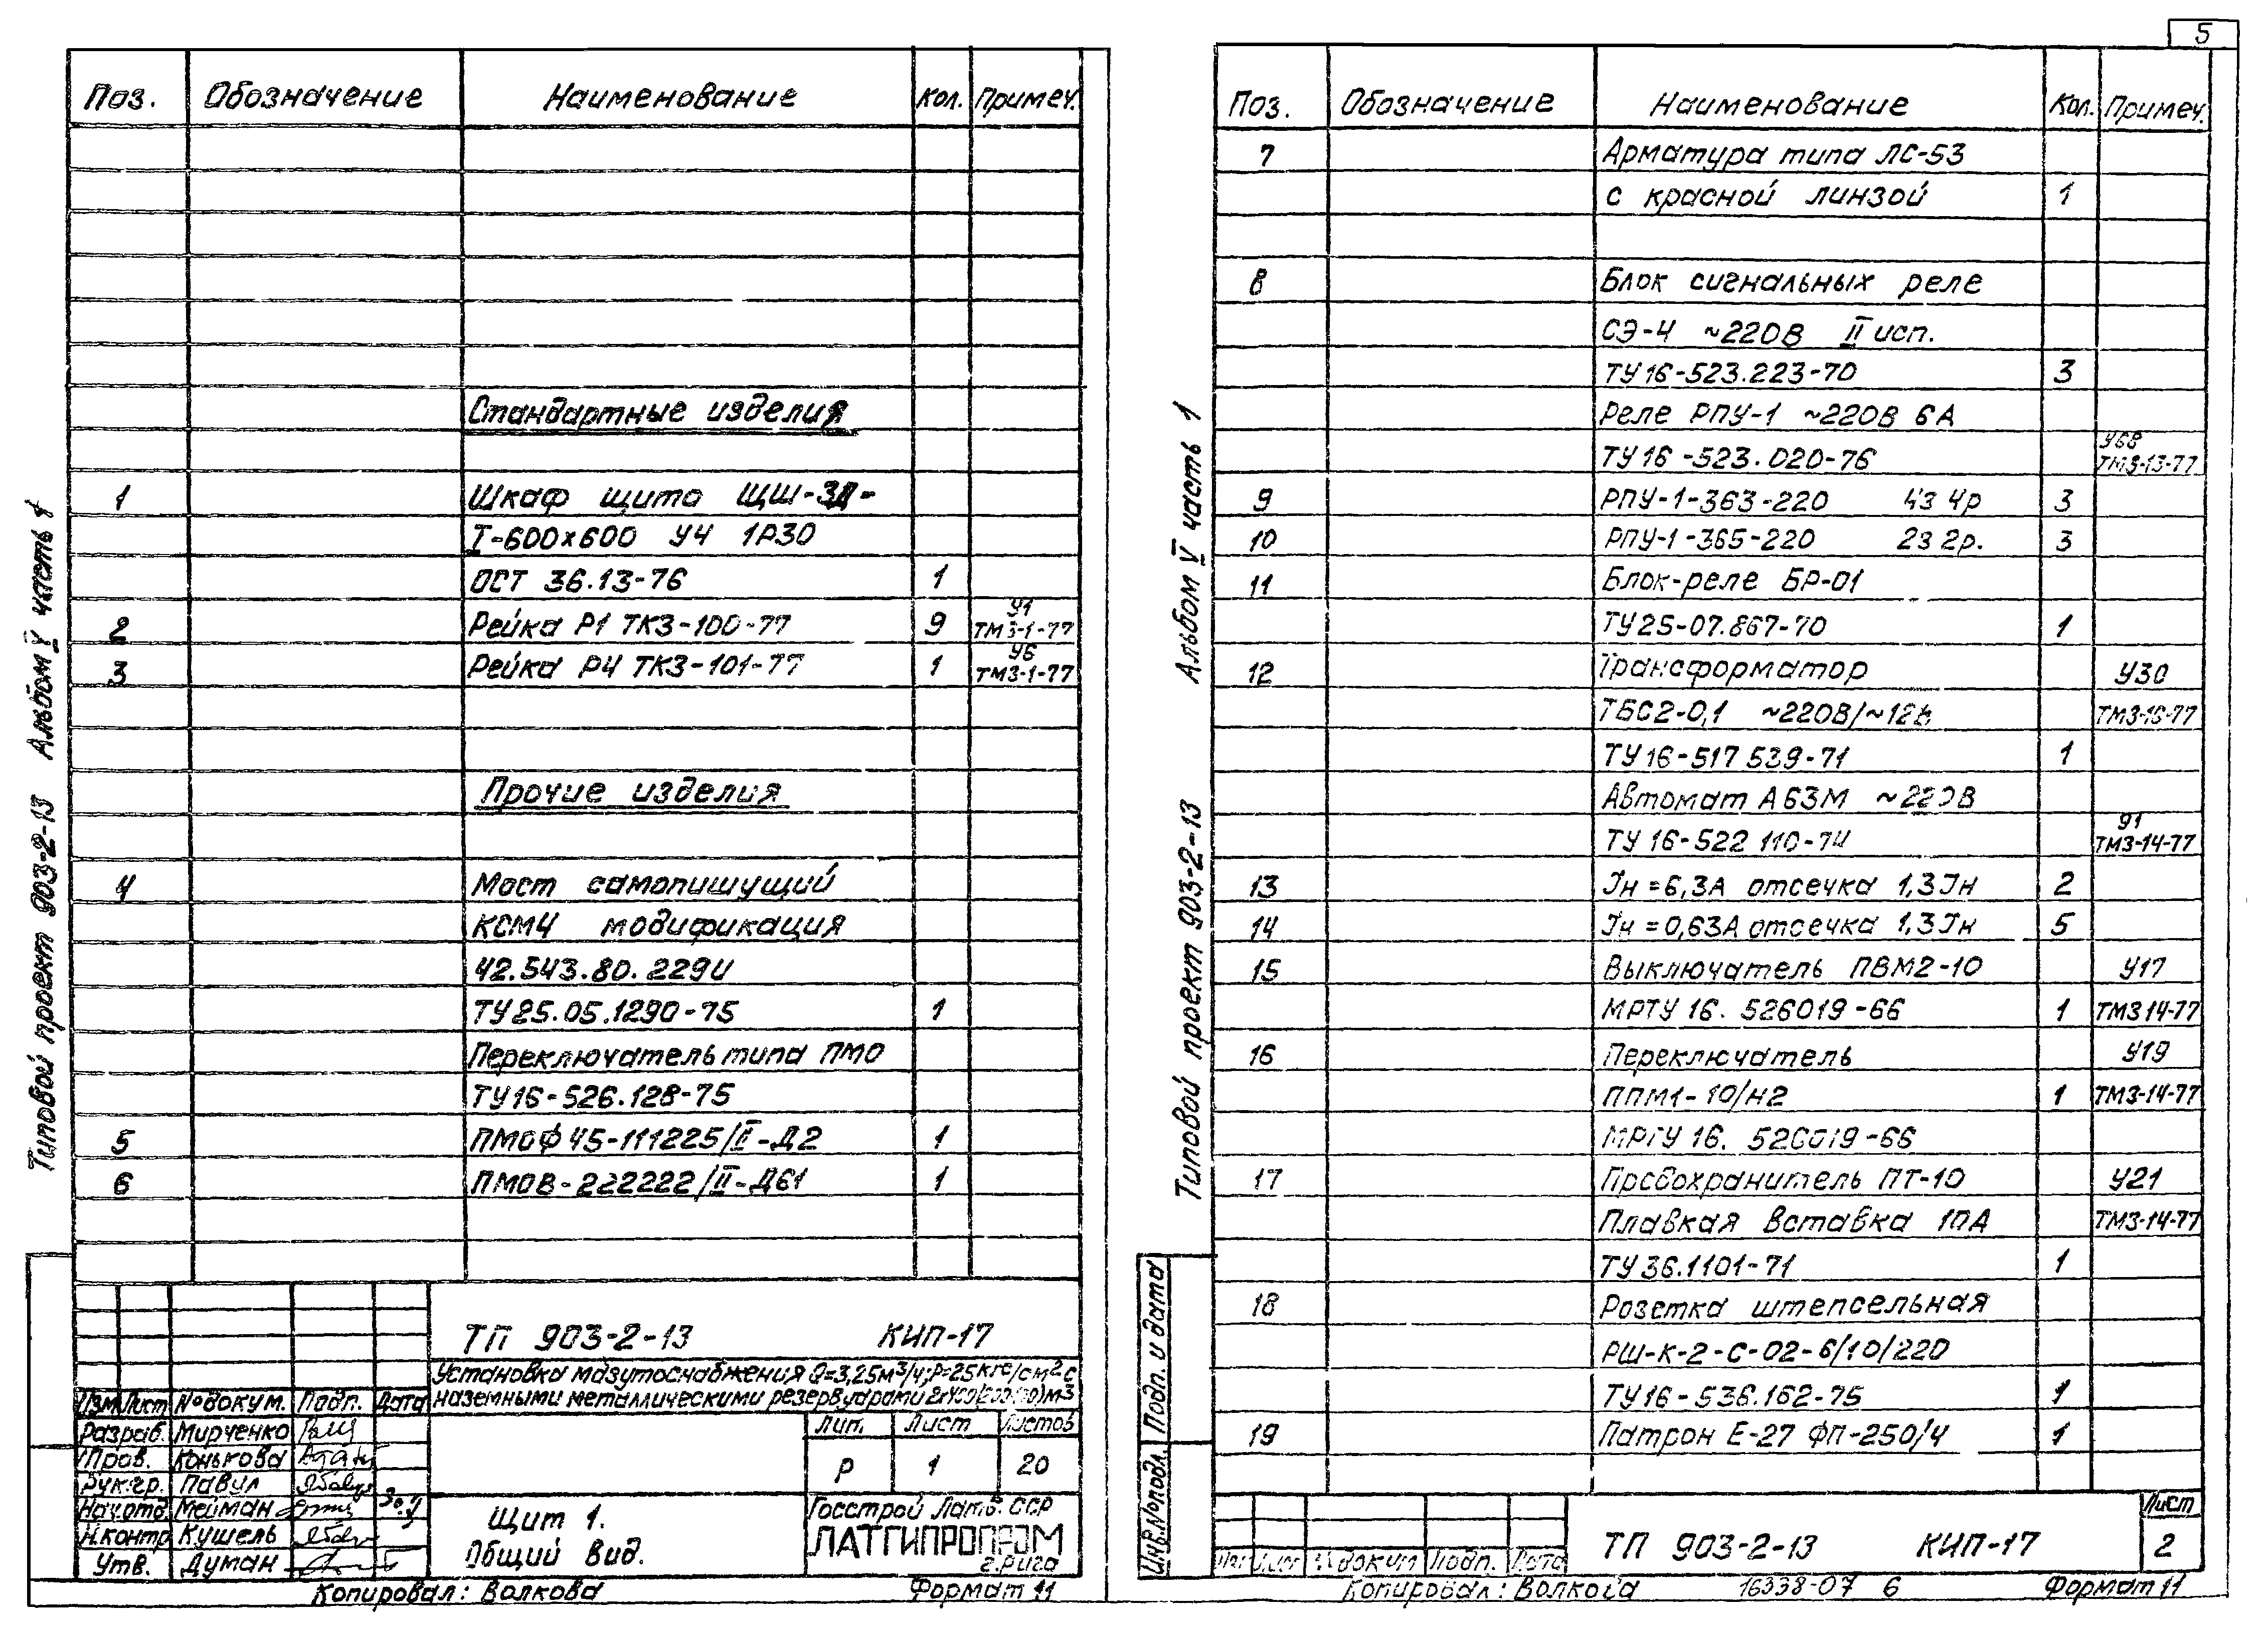 5
Поз. Обозначение Наименование Кол. Примеч.
Стандартные изделия
1 Шкаф щита ЩШ-ЗД-
I-600×600 У4 1Р30
ОСТ 36.13-76 1
2 Рейка Р1 ТК3-100-77 9 У1 ТМ3-1-77
3 Рейка Р4 ТК3-101-77 1 У6 ТМ3-1-77
Прочие изделия
4 Мост самопишущий
КСМ4 модификация
42.543.80.229И
ТУ25.05.1290-75 1
Переключатель типа ПМО
ТУ16-526.128-75
5 ПМОФ45-111225/II-Д2 1
6 ПМОВ-222222/II-Д61 1
Типовой проект 903-2-13 Альбом V часть 1
ТП 903-2-13 КИП-17
Установка мазутоснабжения Q=3,25м³/ч; Р=25кгс/см² с
наземными металлическими резервуарами
Изм Лист №докум. Подп. Дата
Лит. Лист Листов
Р 1 20
Разраб. Мирченко
Пров. Конькова
Рук.гр. Павул
Нач.отд. Мейман
Н.контр Кушель
Утв. Думан
Щит 1.
Общий вид.
Госстрой Латв. ССР
ЛАТГИПРОПРОМ
г.Рига
Копировал: Волкова Формат 11
Поз. Обозначение Наименование Кол. Примеч.
7 Арматура типа ЛС-53
с красной линзой 1
8 Блок сигнальных реле
СЭ-4 ~220В II исп.
ТУ16-523.223-70 3
Реле РПУ-1 ~220В 6А
ТУ16-523.020-76 У68 ТМ3-13-77
9 РПУ-1-363-220 4з 4р 3
10 РПУ-1-365-220 2з 2р. 3
11 Блок-реле БР-01
ТУ25-07.867-70 1
12 Трансформатор У30
ТБС2-0,1 ~220В/~12В
ТУ16-517 539-71 1
Автомат А63М ~220В
ТУ16-522 110-74 91 ТМ3-14-77
13 Iн=6,3А отсечка 1,3Iн 2
14 Iн=0,63А отсечка 1,3Iн 5
15 Выключатель ПВМ2-10 У17
МРТУ 16. 526019-66 1 ТМ3 14-77
16 Переключатель У19
ППМ1-10/Н2 1 ТМ3-14-77
МРТУ 16. 526019-66
17 Предохранитель ПТ-10 У21
Плавкая вставка 10А ТМ3-14-77
ТУ36.1101-71 1
18 Розетка штепсельная
РШ-К-2-С-02-6/10/220
ТУ16-536.162-75 1
19 Патрон Е-27 ФП-250/4 1
Типовой проект 903-2-13 Альбом V часть 1
Инв.№подл. Подп. и дата
ТП 903-2-13 КИП-17
Лист
2
Изм Лист №докум Подп. Дата
Копировал: Волкова 16338-07 6 Формат 11